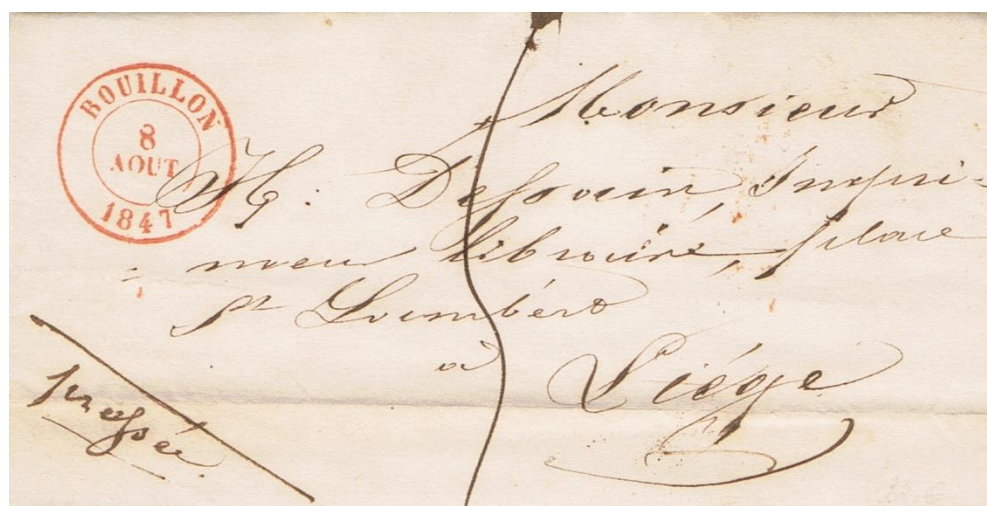 BOUILLON
8
AOUT
1847
Monsieur
H: Dessain, Impri-
meur libraire, place
St Lambert
à
Liége
pressée